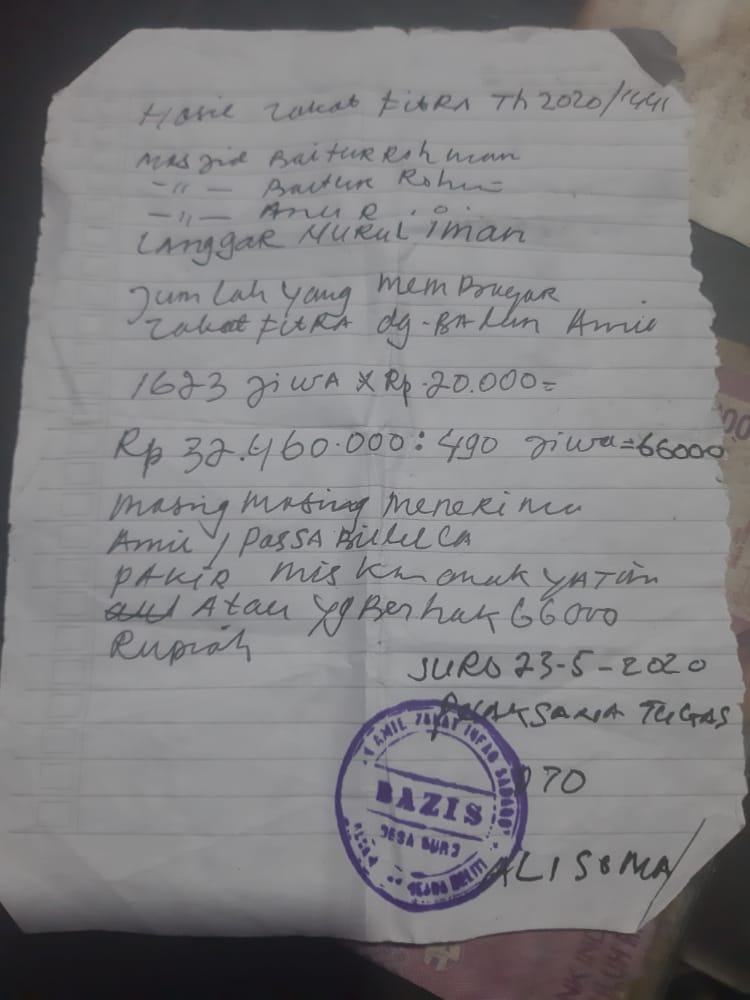 Hasil Zakat FitRA Th 2020/1441
Masjid Baitur Rohman
-"- Baitur Rohim
-"- Anur
LANggAR NURUL iman
Jumlah yang memBayar
Zakat FitRA dg. BAdan Amil
1623 jiwA X Rp. 20.000=
Rp 32.460.000 : 490 jiwa = 66000
masing masing menerima
Amil /
pAKiR misKin anak YATim
Atau yg BerhaK 66000
Rupiah
SURO 23-5-2020
TUGAS
DTO
ALI SOMA
AMIL ZAKAT INFAQ
BAZIS
DESA SURO